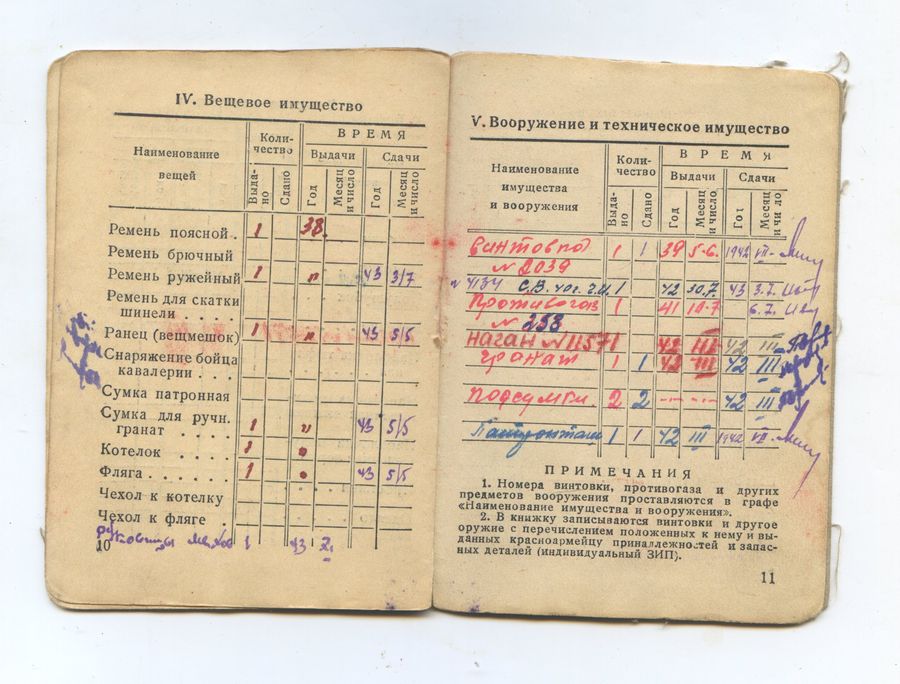 IV. Вещевое имущество
Наименование вещей
Коли-
чество
ВРЕМЯ
Выдачи
Сдачи
Выда-
но
Сдано
Год
Месяц
и число
Год
Месяц
и число
Ремень поясной . 1 38.
Ремень брючный
Ремень ружейный 1 " 43 3/7
Ремень для скатки
шинели . . . .
Ранец (вещмешок) 1 " 43 5/5
Снаряжение бойца
кавалерии . . .
Сумка патронная
Сумка для ручн.
гранат . . . . 1 " 43 5/5
Котелок . . . . 1
Фляга . . . . . . 1 43 5/5
Чехол к котелку
Чехол к фляге .
рукавицы 1 43 2.
10
V. Вооружение и техническое имущество
Наименование
имущества
и вооружения
Коли-
чество
ВРЕМЯ
Выдачи
Сдачи
Выда-
но
Сдано
Год
Месяц
и число
Год
Месяц
и число
Винтовка 1 1 39 5-6. 1942 VII-
№ 2039
1 42 30.7 43 3.7.
Противогаз 1 41 10-7 6.7.
№ 258
Наган № 11571 42 III 42 III
гранат 1 1 42 III 42 III
подсумки 2 2 42 III
Патронташ 1 1 42 III 1942 VII-
ПРИМЕЧАНИЯ
1. Номера винтовки, противогаза и других
предметов вооружения проставляются в графе
«Наименование имущества и вооружения».
2. В книжку записываются винтовки и другое
оружие с перечислением положенных к нему и вы-
данных красноармейцу принадлежностей и запас-
ных деталей (индивидуальный ЗИП).
11